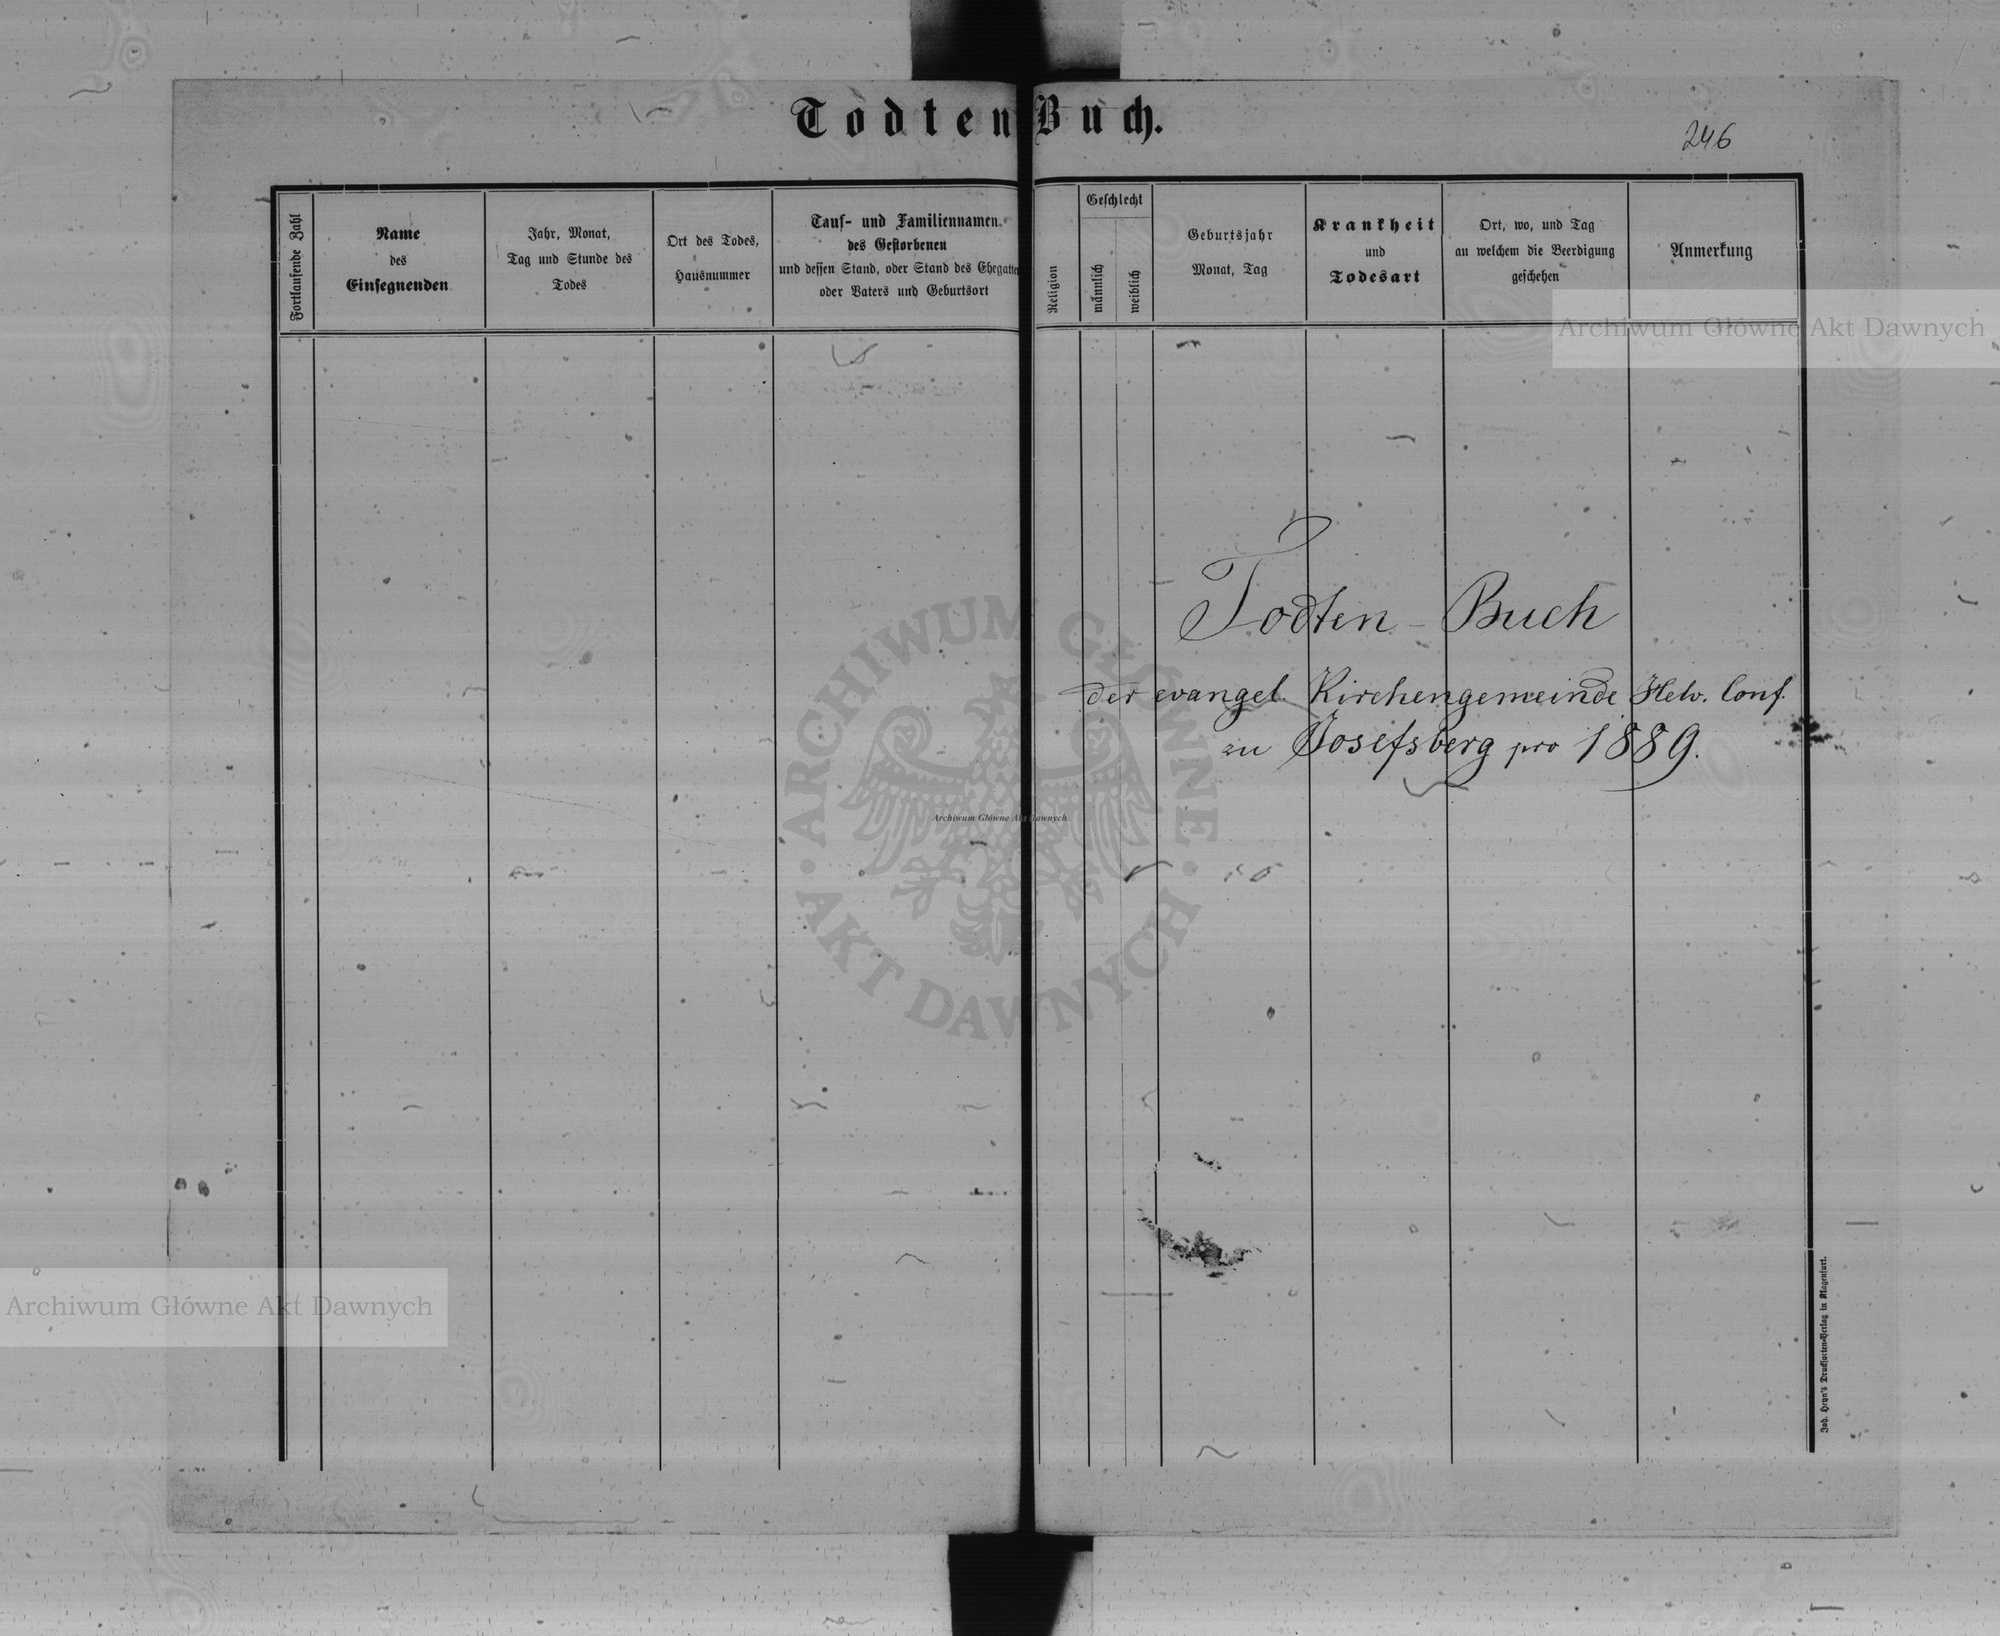 Todten Buch.
246
Fortlaufende Zahl
Name
des
Einsegnenden
Jahr, Monat,
Tag und Stunde des
Todes
Ort des Todes,
Hausnummer
Tauf- und Familiennamen
des Gestorbenen
und dessen Stand, oder Stand des Ehegatten
oder Vaters und Geburtsort
Religion
Geschlecht
männlich
weiblich
Geburtsjahr
Monat, Tag
Krankheit
und
Todesart
Ort, wo, und Tag
an welchem die Beerdigung
geschehen
Anmerkung
Archiwum Główne Akt Dawnych
Todten - Buch
der evangel. Kirchengemeinde Helv. Conf.
zu Josefsberg pro 1889.
ARCHIWUM GŁÓWNE · AKT DAWNYCH ·
Archiwum Główne Akt Dawnych
Archiwum Główne Akt Dawnych
Joh. Heyn's Drucksorten-Verlag in Klagenfurt.